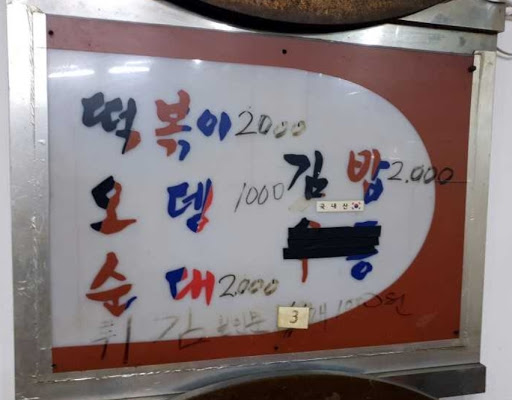 떡볶이 2000
오뎅 1000 김밥 2.000
국내산
순대 2000
튀김
3